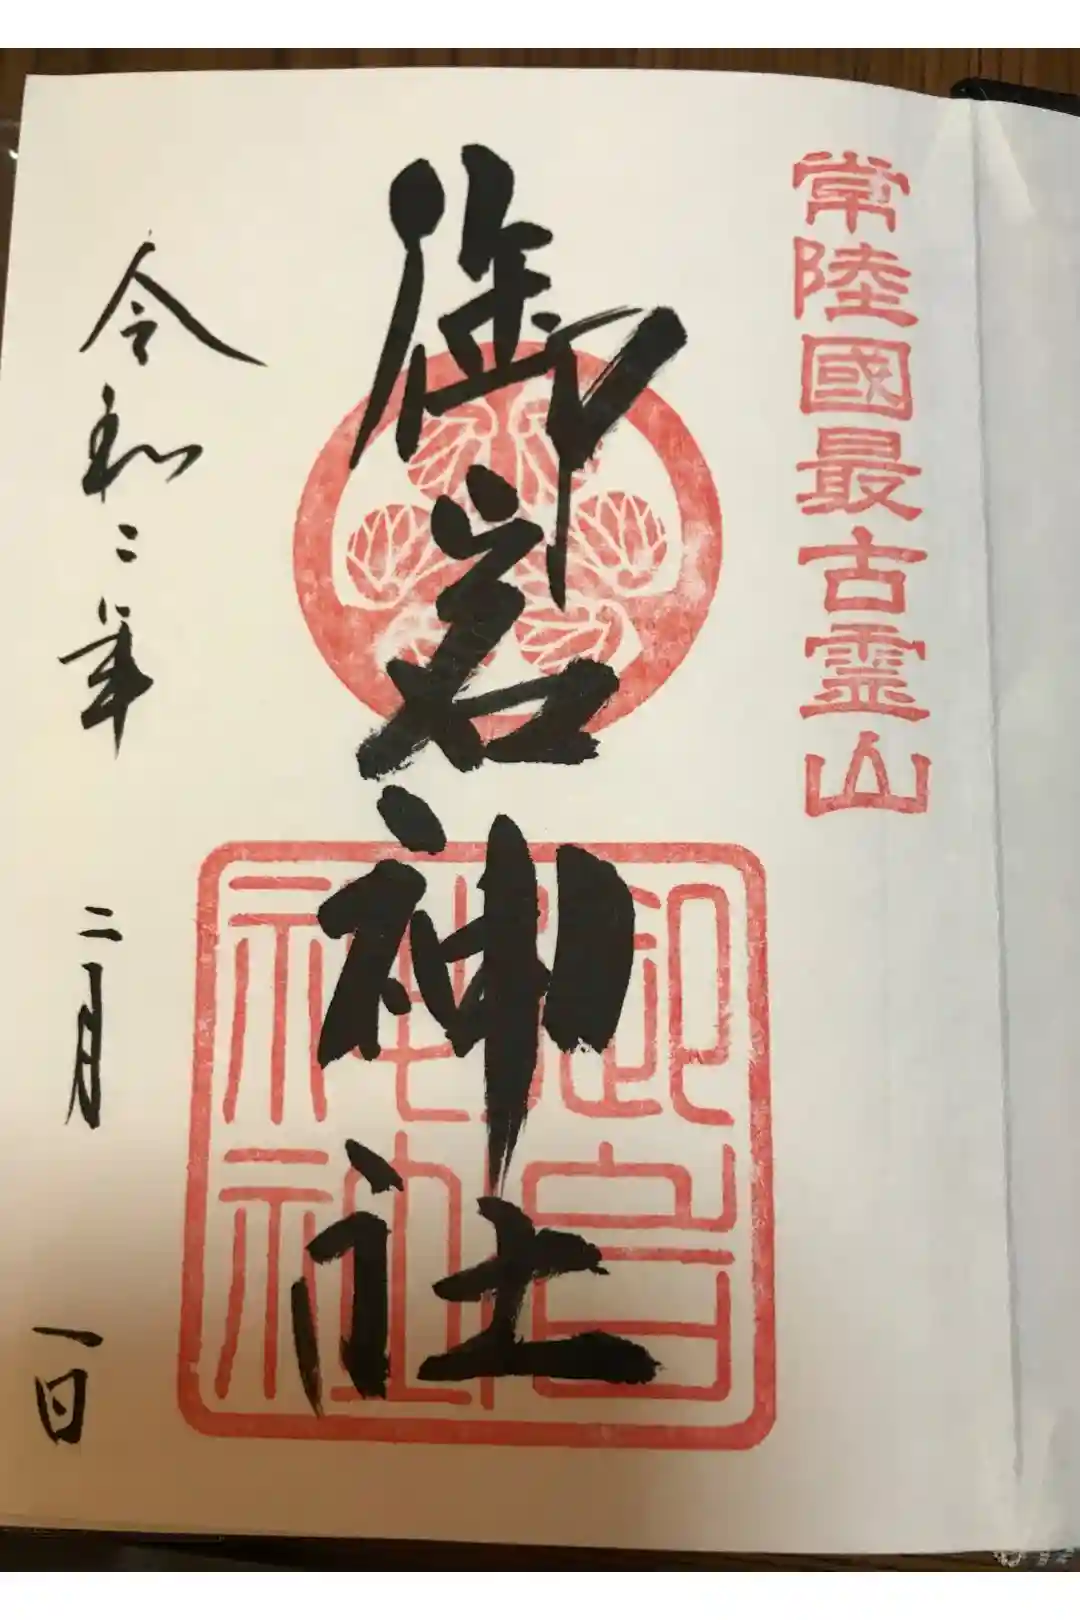 常陸國最古霊山
御岩神社
御岩神社
令和二年 二月 一日